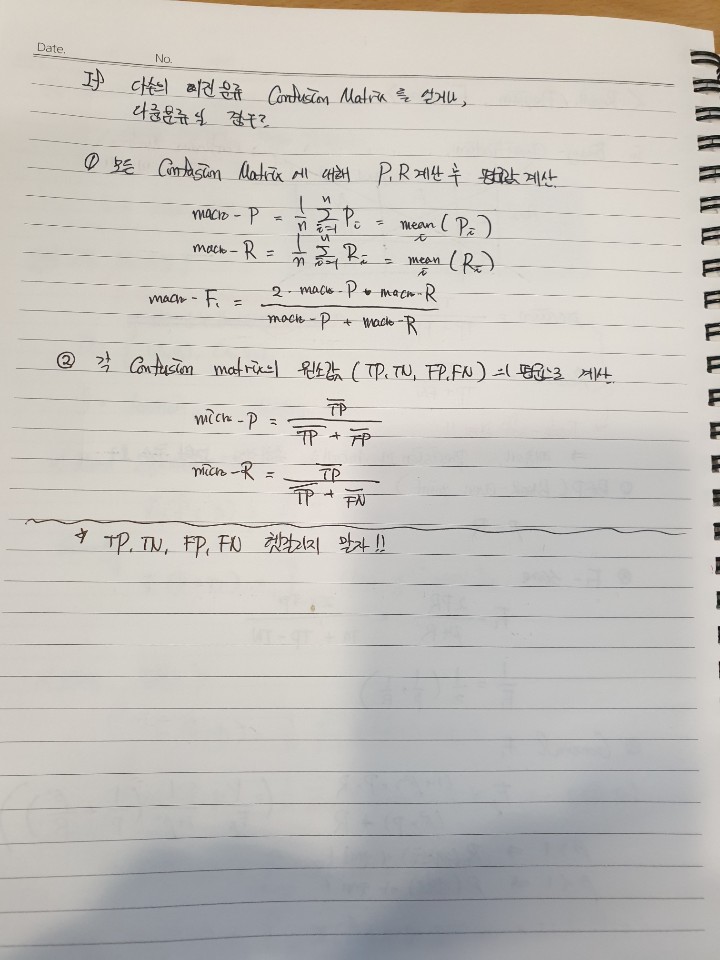 Date.
No.
If) 다수의 이진분류 Confusion Matrix를 얻거나,
다중분류일 경우?
① 모든 Confusion Matrix에 대해 P, R계산 후 평균값 계산.
macro-P = 1/n ∑_{i=1}^{n} P_i = mean_i (P_i)
macro-R = 1/n ∑_{i=1}^{n} R_i = mean_i (R_i)
macro-F₁ = (2 · macro-P · macro-R) / (macro-P + macro-R)
② 각 Confusion matrix의 원소값 (TP, TN, FP, FN)의 평균으로 계산
micro-P = T̅P̅ / (T̅P̅ + F̅P̅)
micro-R = T̅P̅ / (T̅P̅ + F̅N̅)
TP, TN, FP, FN 헷갈리지 말자!!